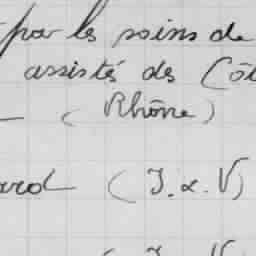 par les soins de
assistés des Côt
( Rhône )
ard ( J. &. V)